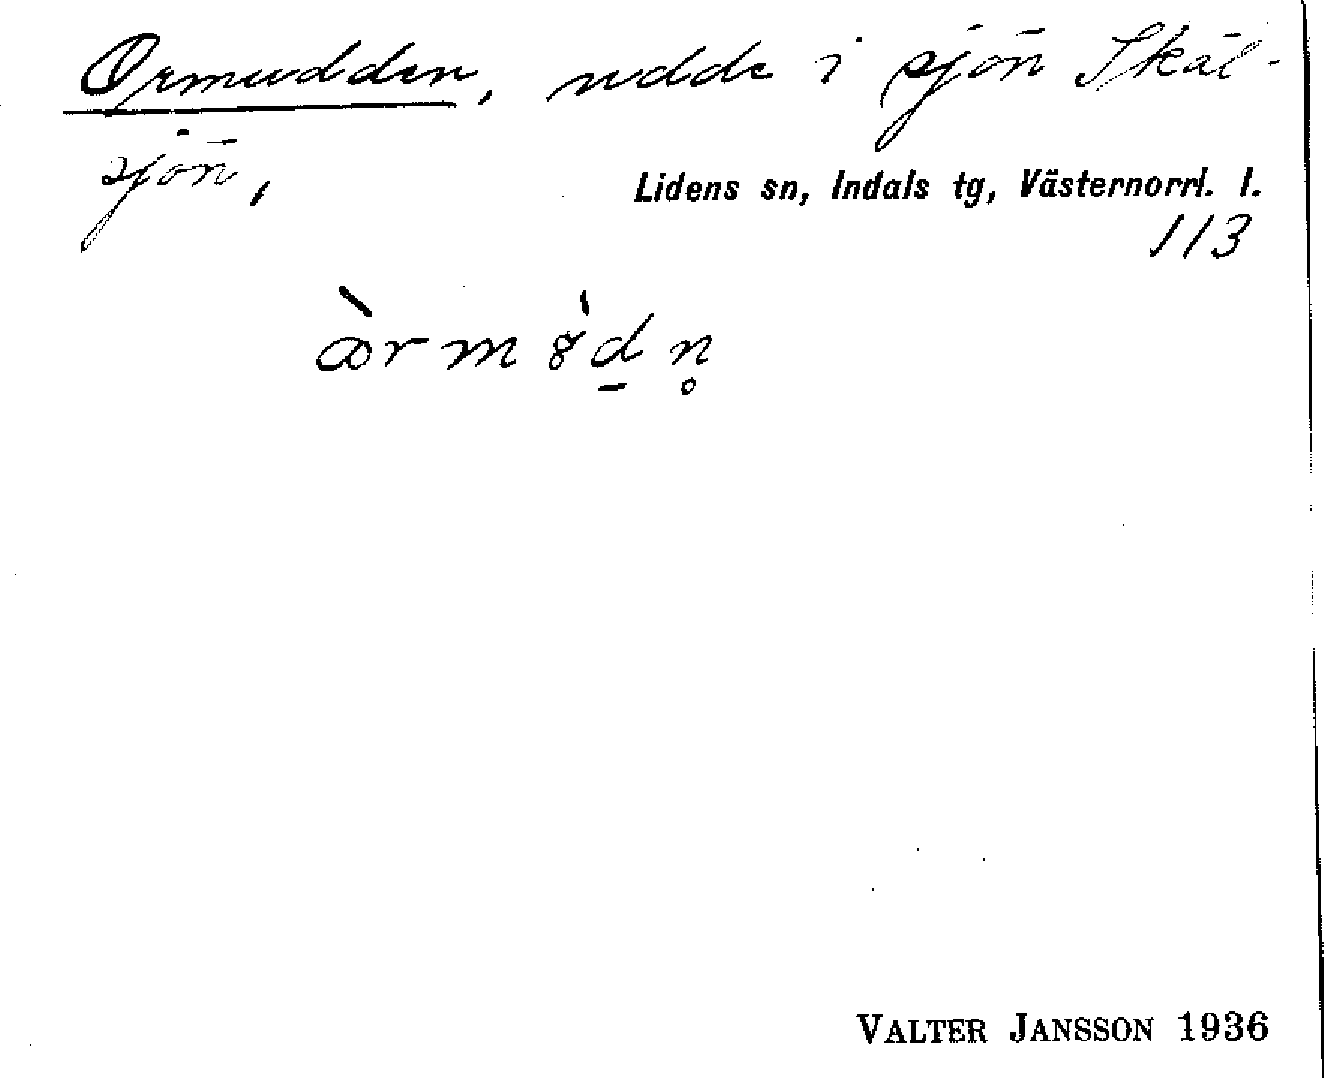 Ormudden, udde i sjön Skäl-
sjön,
Lidens sn, Indals tg, Västernorrl. l.
113
VALTER JANSSON 1936